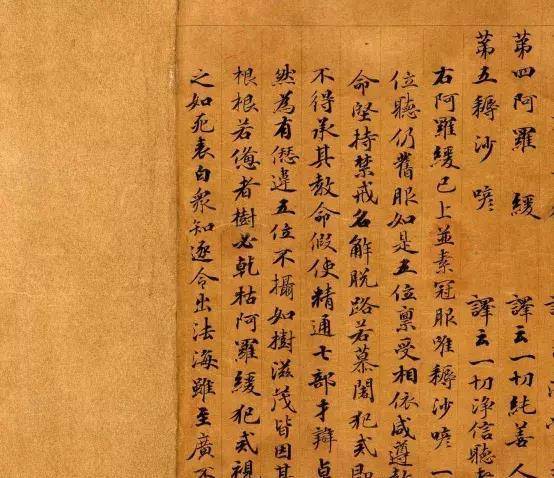 第四阿羅緩 譯云一切純善人
第五耨沙喭 譯云一切淨信聽
右阿羅緩已上並素冠服唯耨沙喭一
位聽仍舊服如是五位稟受相依咸遵教
命堅持禁戒名解脫路若慕闍犯戒即
不得承其教命假使精通七部才辯卓
然為有僁違五位不攝如樹滋茂皆因其
根根若憊者樹必乾枯阿羅緩犯戒視
之如死表白衆知逐令出法海雖至廣不